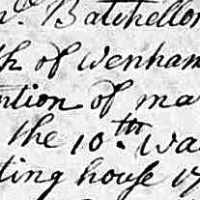 Batchellor
th of Wenham
ntion of ma
the 10th. Wa
ting house 17